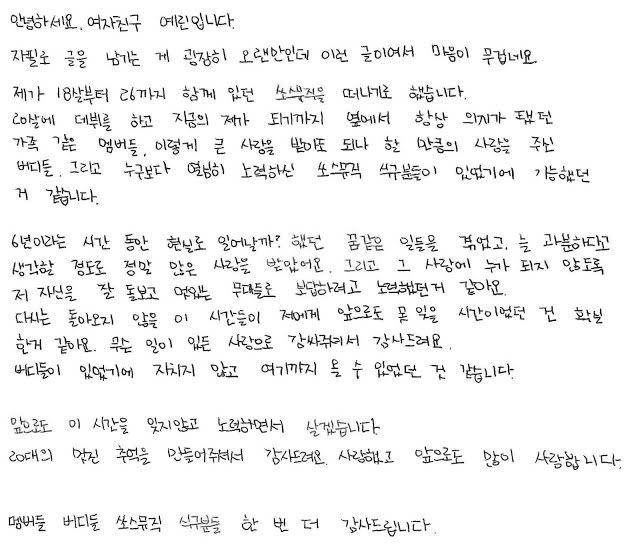 안녕하세요. 여자친구 예린입니다.
자필로 글을 남기는 게 굉장히 오랜만인데 이런 글이여서 마음이 무겁네요.
제가 18살부터 26까지 함께 있던 쏘스뮤직을 떠나기로 했습니다.
20살에 데뷔를 하고 지금의 제가 되기까지 옆에서 항상 의지가 됐던
가족 같은 멤버들, 이렇게 큰 사랑을 받아도 되나 할 만큼의 사랑을 주신
버디들, 그리고 누구보다 열심히 노력하신 쏘스뮤직 식구분들이 있었기에 가능했던
거 같습니다.
6년이라는 시간 동안 현실로 일어날까? 했던 꿈같은 일들을 겪었고, 늘 과분하다고
생각할 정도로 정말 많은 사랑을 받았어요. 그리고 그 사랑에 누가 되지 않도록
저 자신을 잘 돌보고 멋있는 무대들로 보답하려고 노력했던거 같아요.
다시는 돌아오지 않을 이 시간들이 저에게 앞으로도 못 잊을 시간이었던 건 확실
한거 같아요. 무슨 일이 있든 사랑으로 감싸줘서 감사드려요.
버디들이 있었기에 지치지 않고 여기까지 올 수 있었던 것 같습니다.
앞으로도 이 시간을 잊지않고 노력하면서 살겠습니다.
20대의 멋진 추억을 만들어주셔서 감사드려요. 사랑했고 앞으로도 많이 사랑합니다.
멤버들 버디들 쏘스뮤직 식구분들 한 번 더 감사드립니다.